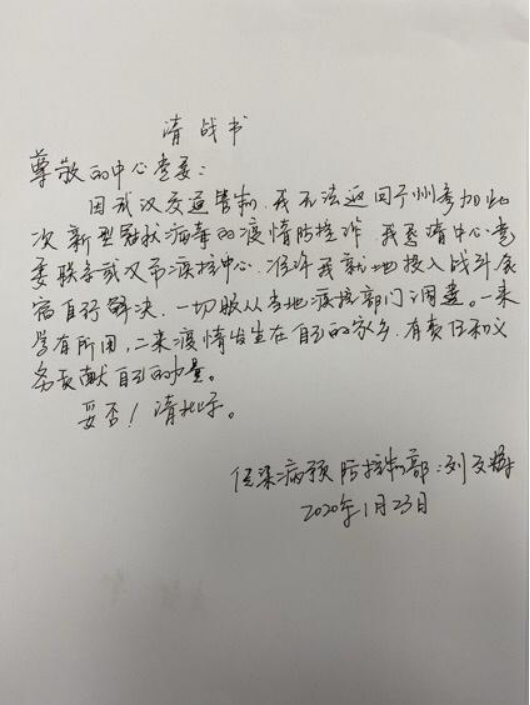 请战书
尊敬的中心党委：
因武汉交通管制，我无法返回广州参加此
次新型冠状病毒的疫情防控工作，我恳请中心党
委联系武汉市疾控中心，准许我就地投入战斗食
宿自行解决，一切服从当地疾控部门调遣。一来
学有所用，二来疫情发生在自己的家乡，有责任和义
务贡献自己的力量。
妥否！请批示。
传染病预防控制部：刘文辉
2020年1月23日